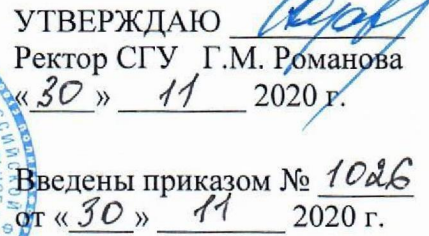 УТВЕРЖДАЮ
Ректор СГУ Г.М. Романова
«30» 11 2020 г.
Введены приказом № 1026
от «30» 11 2020 г.